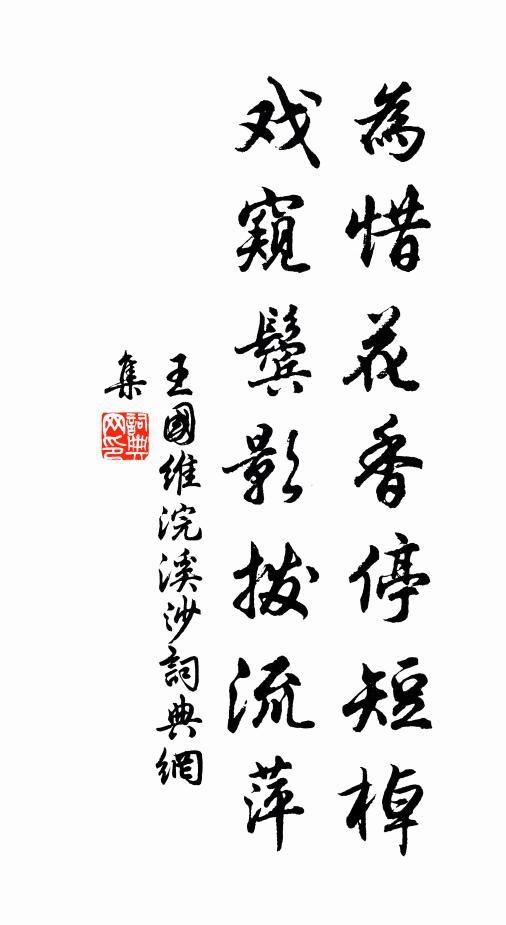 為惜花香停短棹
戏窺鬓影拨流萍
王國維浣溪沙詞典網
集
詞典网印